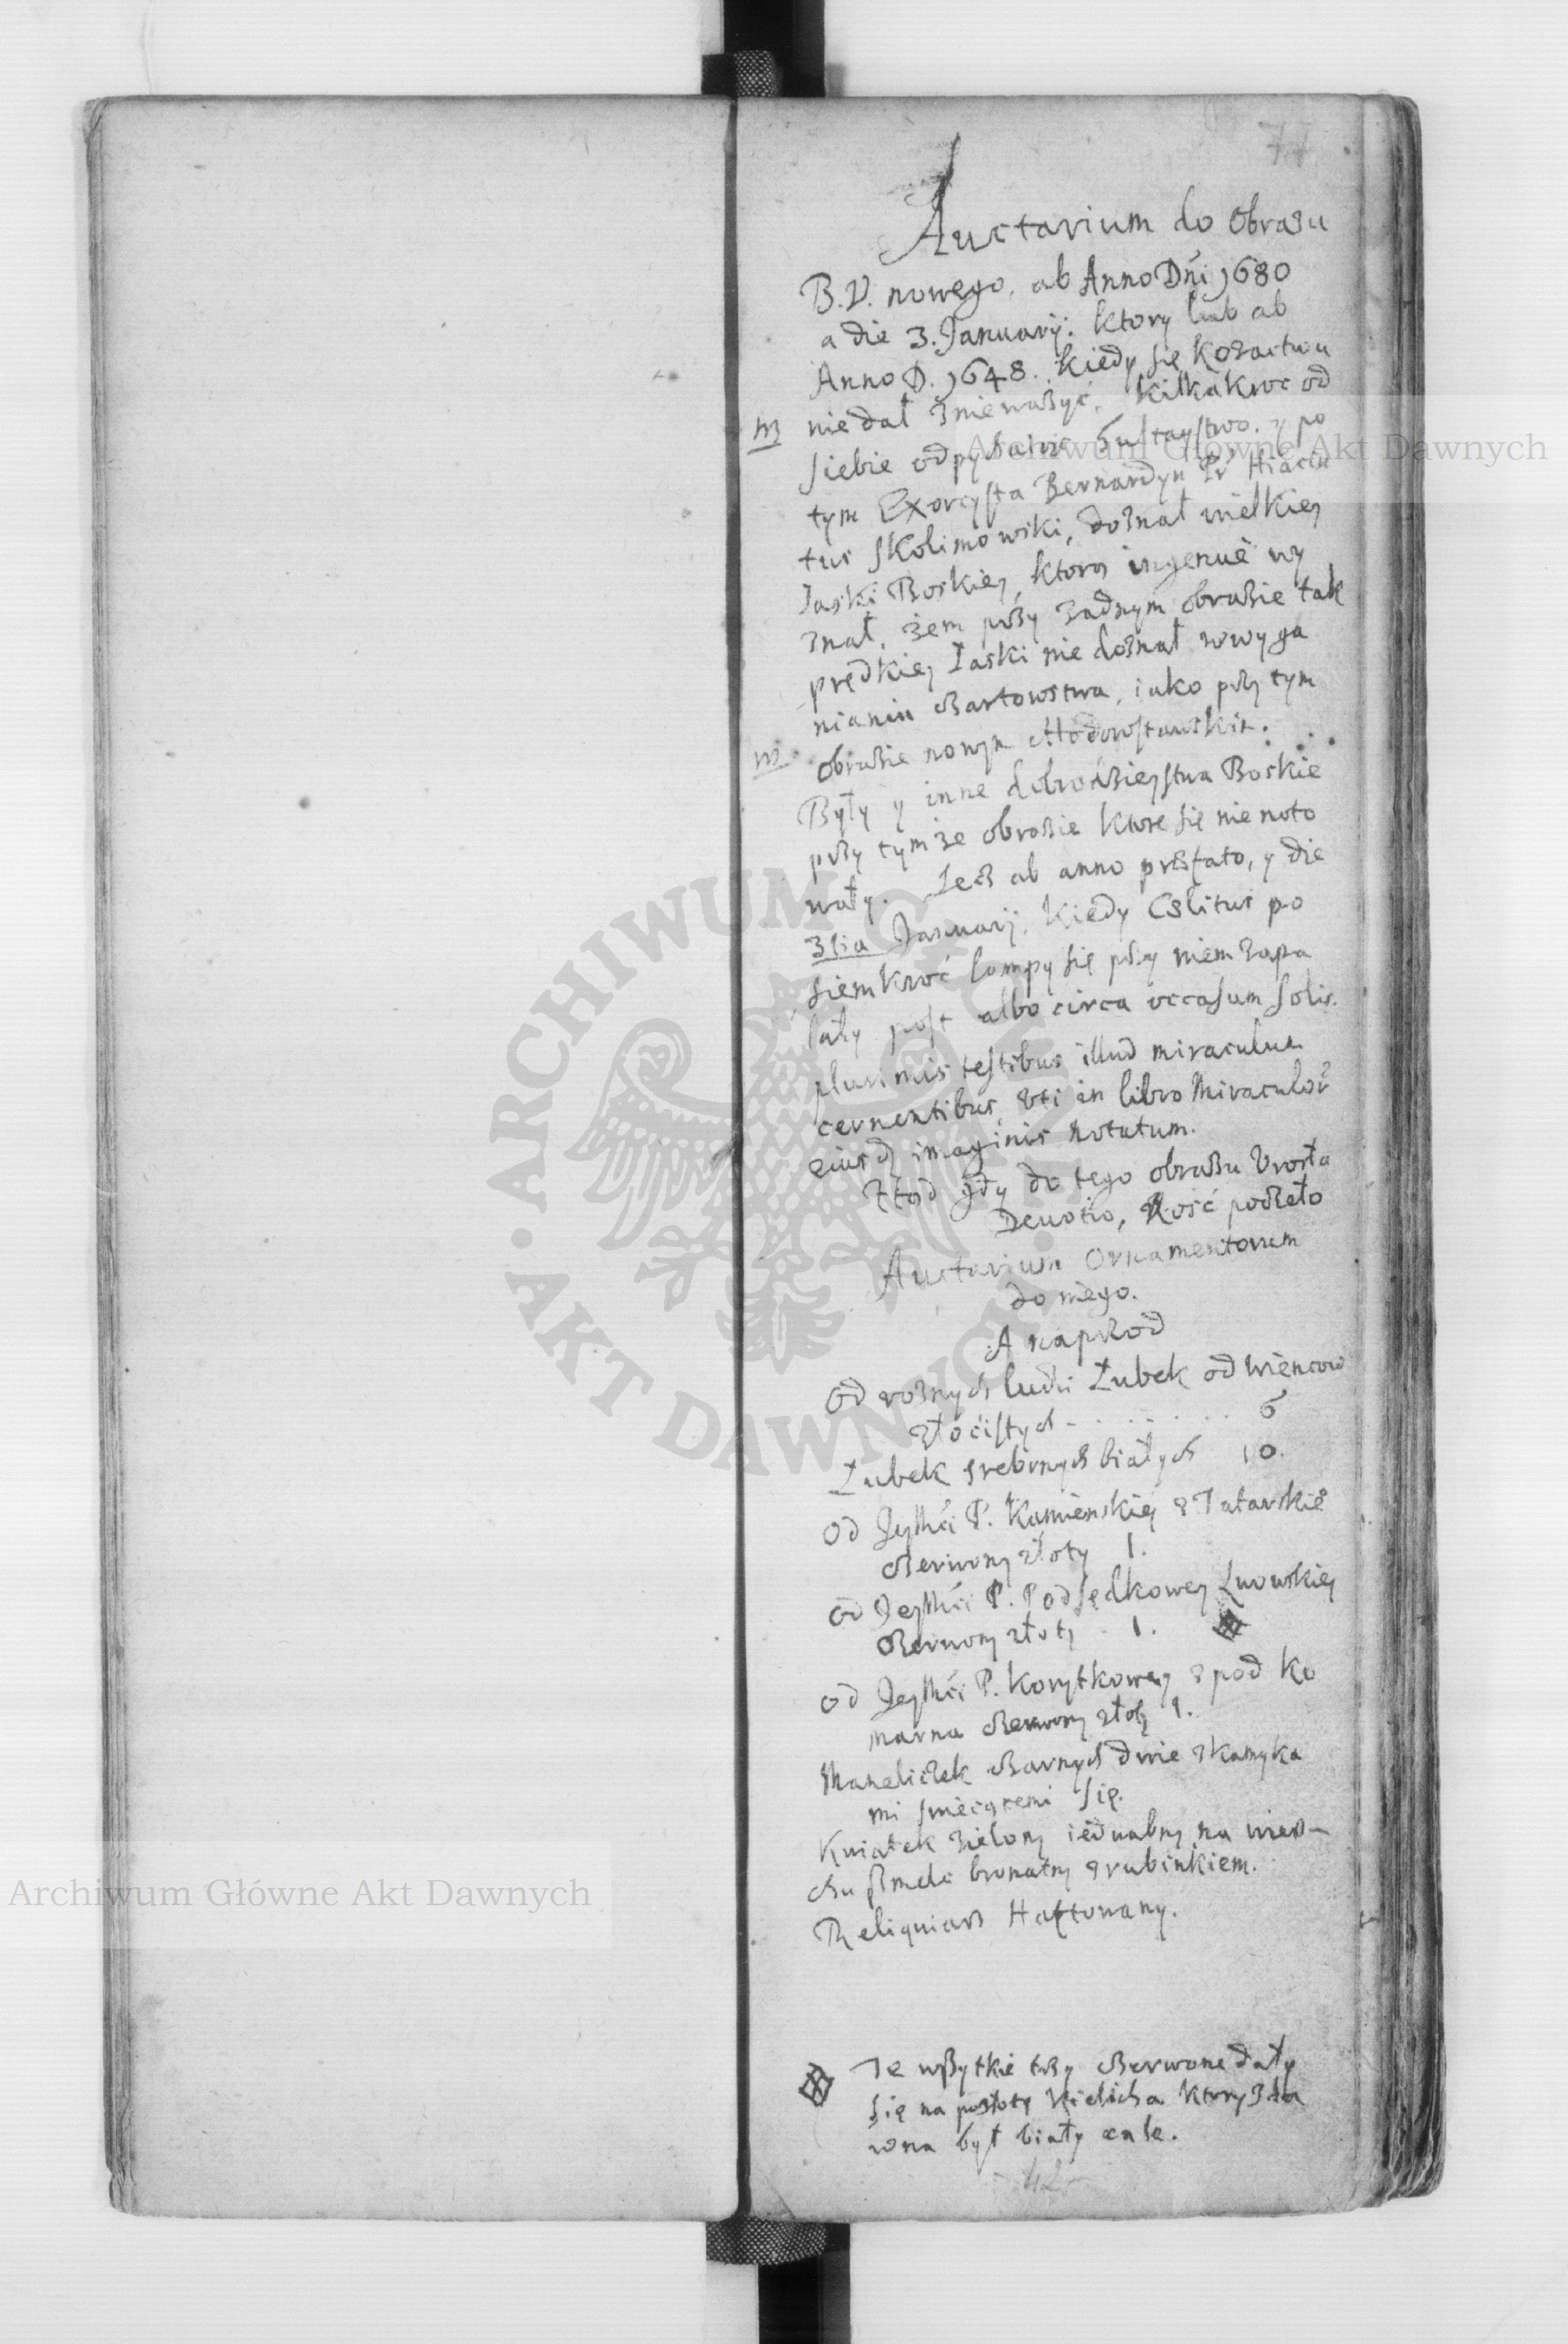 77
Auctarium do Obrazu
B.V. nowego, ab Anno Dni 1680
a die 3. Januarij. ktory lub ab
Anno D. 1648. kiedy się kozactwu
nie dał znieważyć, kilkakroc od
siebie odpychaiąc hultaystwo. y po
tym Exorcysta Bernardyn Pr Hiacin
tus Skolimowski, doznał wielkiey
łaski Boskiey, ktorą ingenuè wy
znał, żem przy żadnym obrazie tak
prędkiey łaski nie doznał w wyga
nianiu czartowstwa, iako przy tym
obrazie nowym
Były y inne dobrodzieystwa Boskie
przy tymże obrazie ktore się nie noto
wały. Lecz ab anno præfato, y die
3tia Januarij, kiedy Cælitus po
siemkroć lampy się przy niem zapa
lały post albo circa occasum solis.
plurimis testibus illud miraculum
cernentibus, uti in libro Miraculor
eiusd imaginis notatum.
Ztąd gdy do tego obrazu Urosła
Devotio, Rość poczęło
Auctarium Ornamentorum
do niego.
A naprzod
Od roznych ludzi Łubek od wiencow
złocistych - . . . . . . 6
Łubek srebrnych białych 10.
Od JeyMći P. Kamienskiey z Tatarskie
czerwony złoty 1.
Od JeyMći P. Podsędkowey Lwowskiey
czerwony złoty . 1.
Od JeyMći P. Korytkowey z pod Ko
marna czerwony złoty 1.
Maneliczek czarnych dwie z kamyka
mi swiecącemi się.
Kwiatek zielony iedwabny na wierz-
chu szmelc brunatny z rubinkiem.
Reliquiarz Haftowany.
Te wszytkie trzy czerwone dały
się na pozłotę kielicha ktory zda
wna był biały cale.
Archiwum Główne Akt Dawnych
Archiwum Główne Akt Dawnych
ARCHIWUM GŁÓWNE AKT DAWNYCH